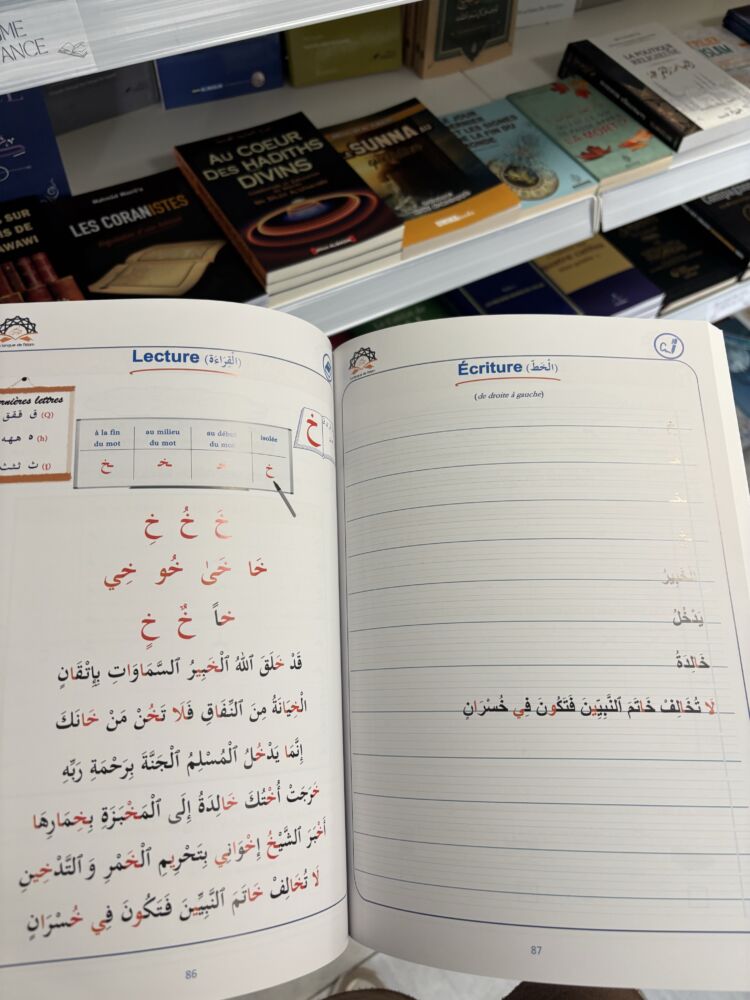 AU COEUR
DES HADITHS
DIVINS
LES CORANISTES
SUNNA
LA POLITIQUE
RELIGIEUSE
ISLAM
LA MORT
Lecture (الْقِرَاءَة)
(Q) ق ققق
(h) ه ههه
à la fin du mot
au milieu du mot
au début du mot
isolée
خ
ـخ ـخـ خـ خ
خَ خُ خِ
خَا خَىٰ خُو خِي
خاً خٌ خٍ
قَدْ خَلَقَ اللهُ ٱلْخَبِيرُ ٱلسَّمَاوَاتِ بِإِتْقَانٍ
الْخِيَانَةُ مِنَ ٱلنِّفَاقِ فَلَا تَخُنْ مَنْ خَانَكَ
إِنَّمَا يَدْخُلُ ٱلْمُسْلِمُ ٱلْجَنَّةَ بِرَحْمَةِ رَبِّهِ
خَرَجَتْ أُخْتُكَ خَالِدَةُ إِلَى ٱلْمَخْبَزَةِ بِخِمَارِهَا
أَخْبَرَ ٱلشَّيْخُ إِخْوَانِي بِتَحْرِيمِ ٱلْخَمْرِ وَ ٱلتَّدْخِينِ
لَا تُخَالِفْ خَاتَمَ ٱلنَّبِيِّينَ فَتَكُونَ فِي خُسْرَانٍ
86
Écriture (الْخَطّ)
(de droite à gauche)
الْخَبِيرُ
يَدْخُلُ
خَالِدَةُ
لَا تُخَالِفْ خَاتَمَ ٱلنَّبِيِّينَ فَتَكُونَ فِي خُسْرَانٍ
87